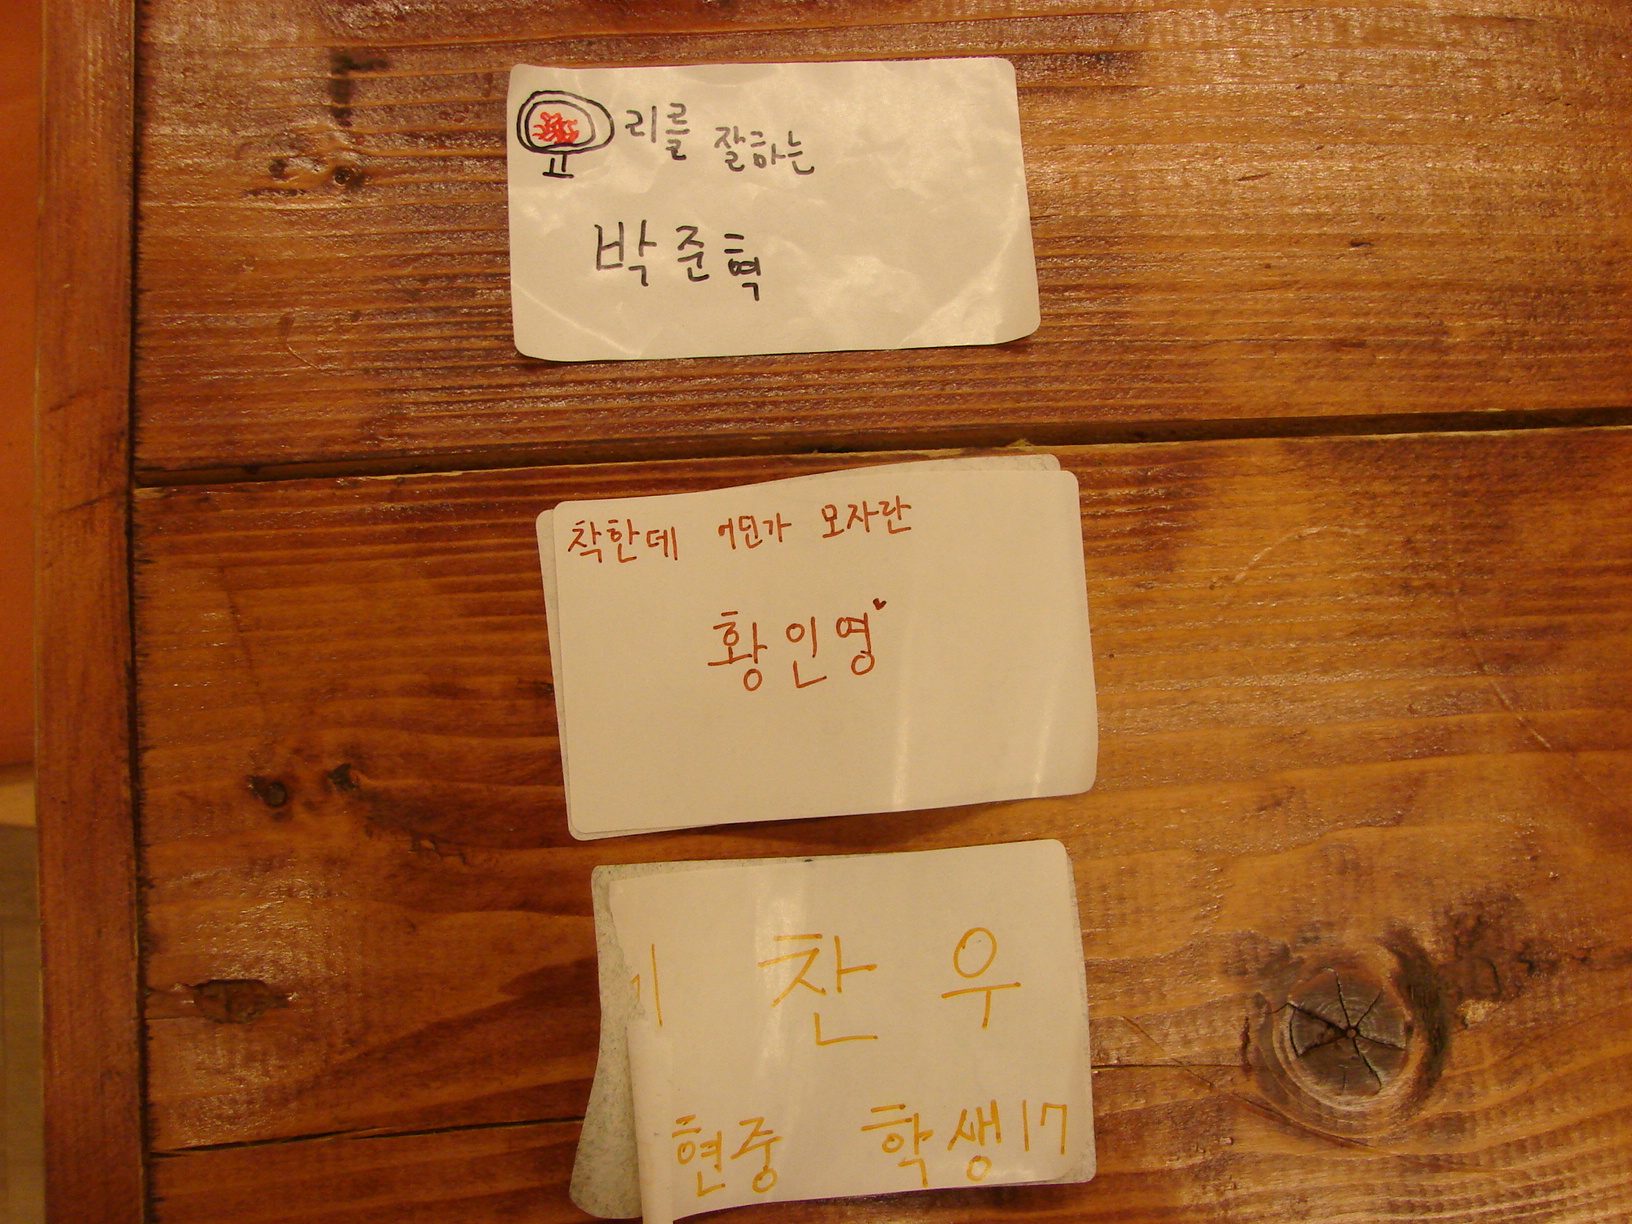 요리를 잘하는
박준혁
착한데 어딘가 모자란
황인영
찬우
현중 학생17